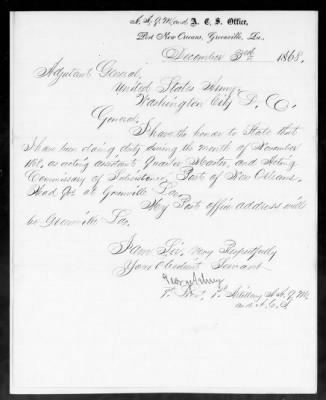 A. A. Q. M. and A. C. S. Office,
Post New Orleans, Greenville, La.,
December 3rd 1868.
Adjutant General,
United States Army,
Washington City D. C.
General,
I have the honor to State that
I have been doing duty during the month of November
1868, as acting assistant Quarter Master, and Acting
Commissary of Subsistence, Post of New Orleans,
Head Qrs at Greenville Lou.
My Post office address will
be Greenville Lou.
I am Sir, very Respectfully
Your Obedient Servant
George
1st Lieut. 1st Artillery A. A. Q. M.
and A. C. S.